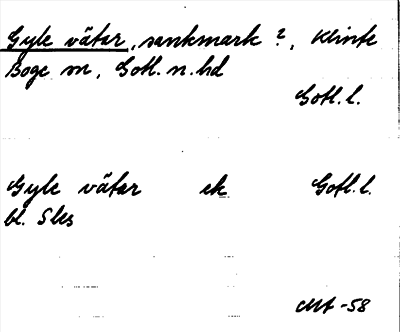 Gyle vätar, sankmark?, Klinte
Boge sn, Gotl. n. hd
Gotl. l.
Gyle vätar ek Gotl. l.
bl. Sks
-58